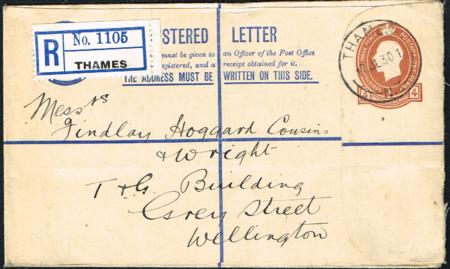 R No. 1105
THAMES
STERED LETTER
must be given to an Officer of the Post Office
registered, and a receipt obtained for it.
THE ADDRESS MUST BE WRITTEN ON THIS SIDE.
THAMES
Messrs
Findlay Hoggard Cousins
& Wright
T & G Building
Grey Street
Wellington